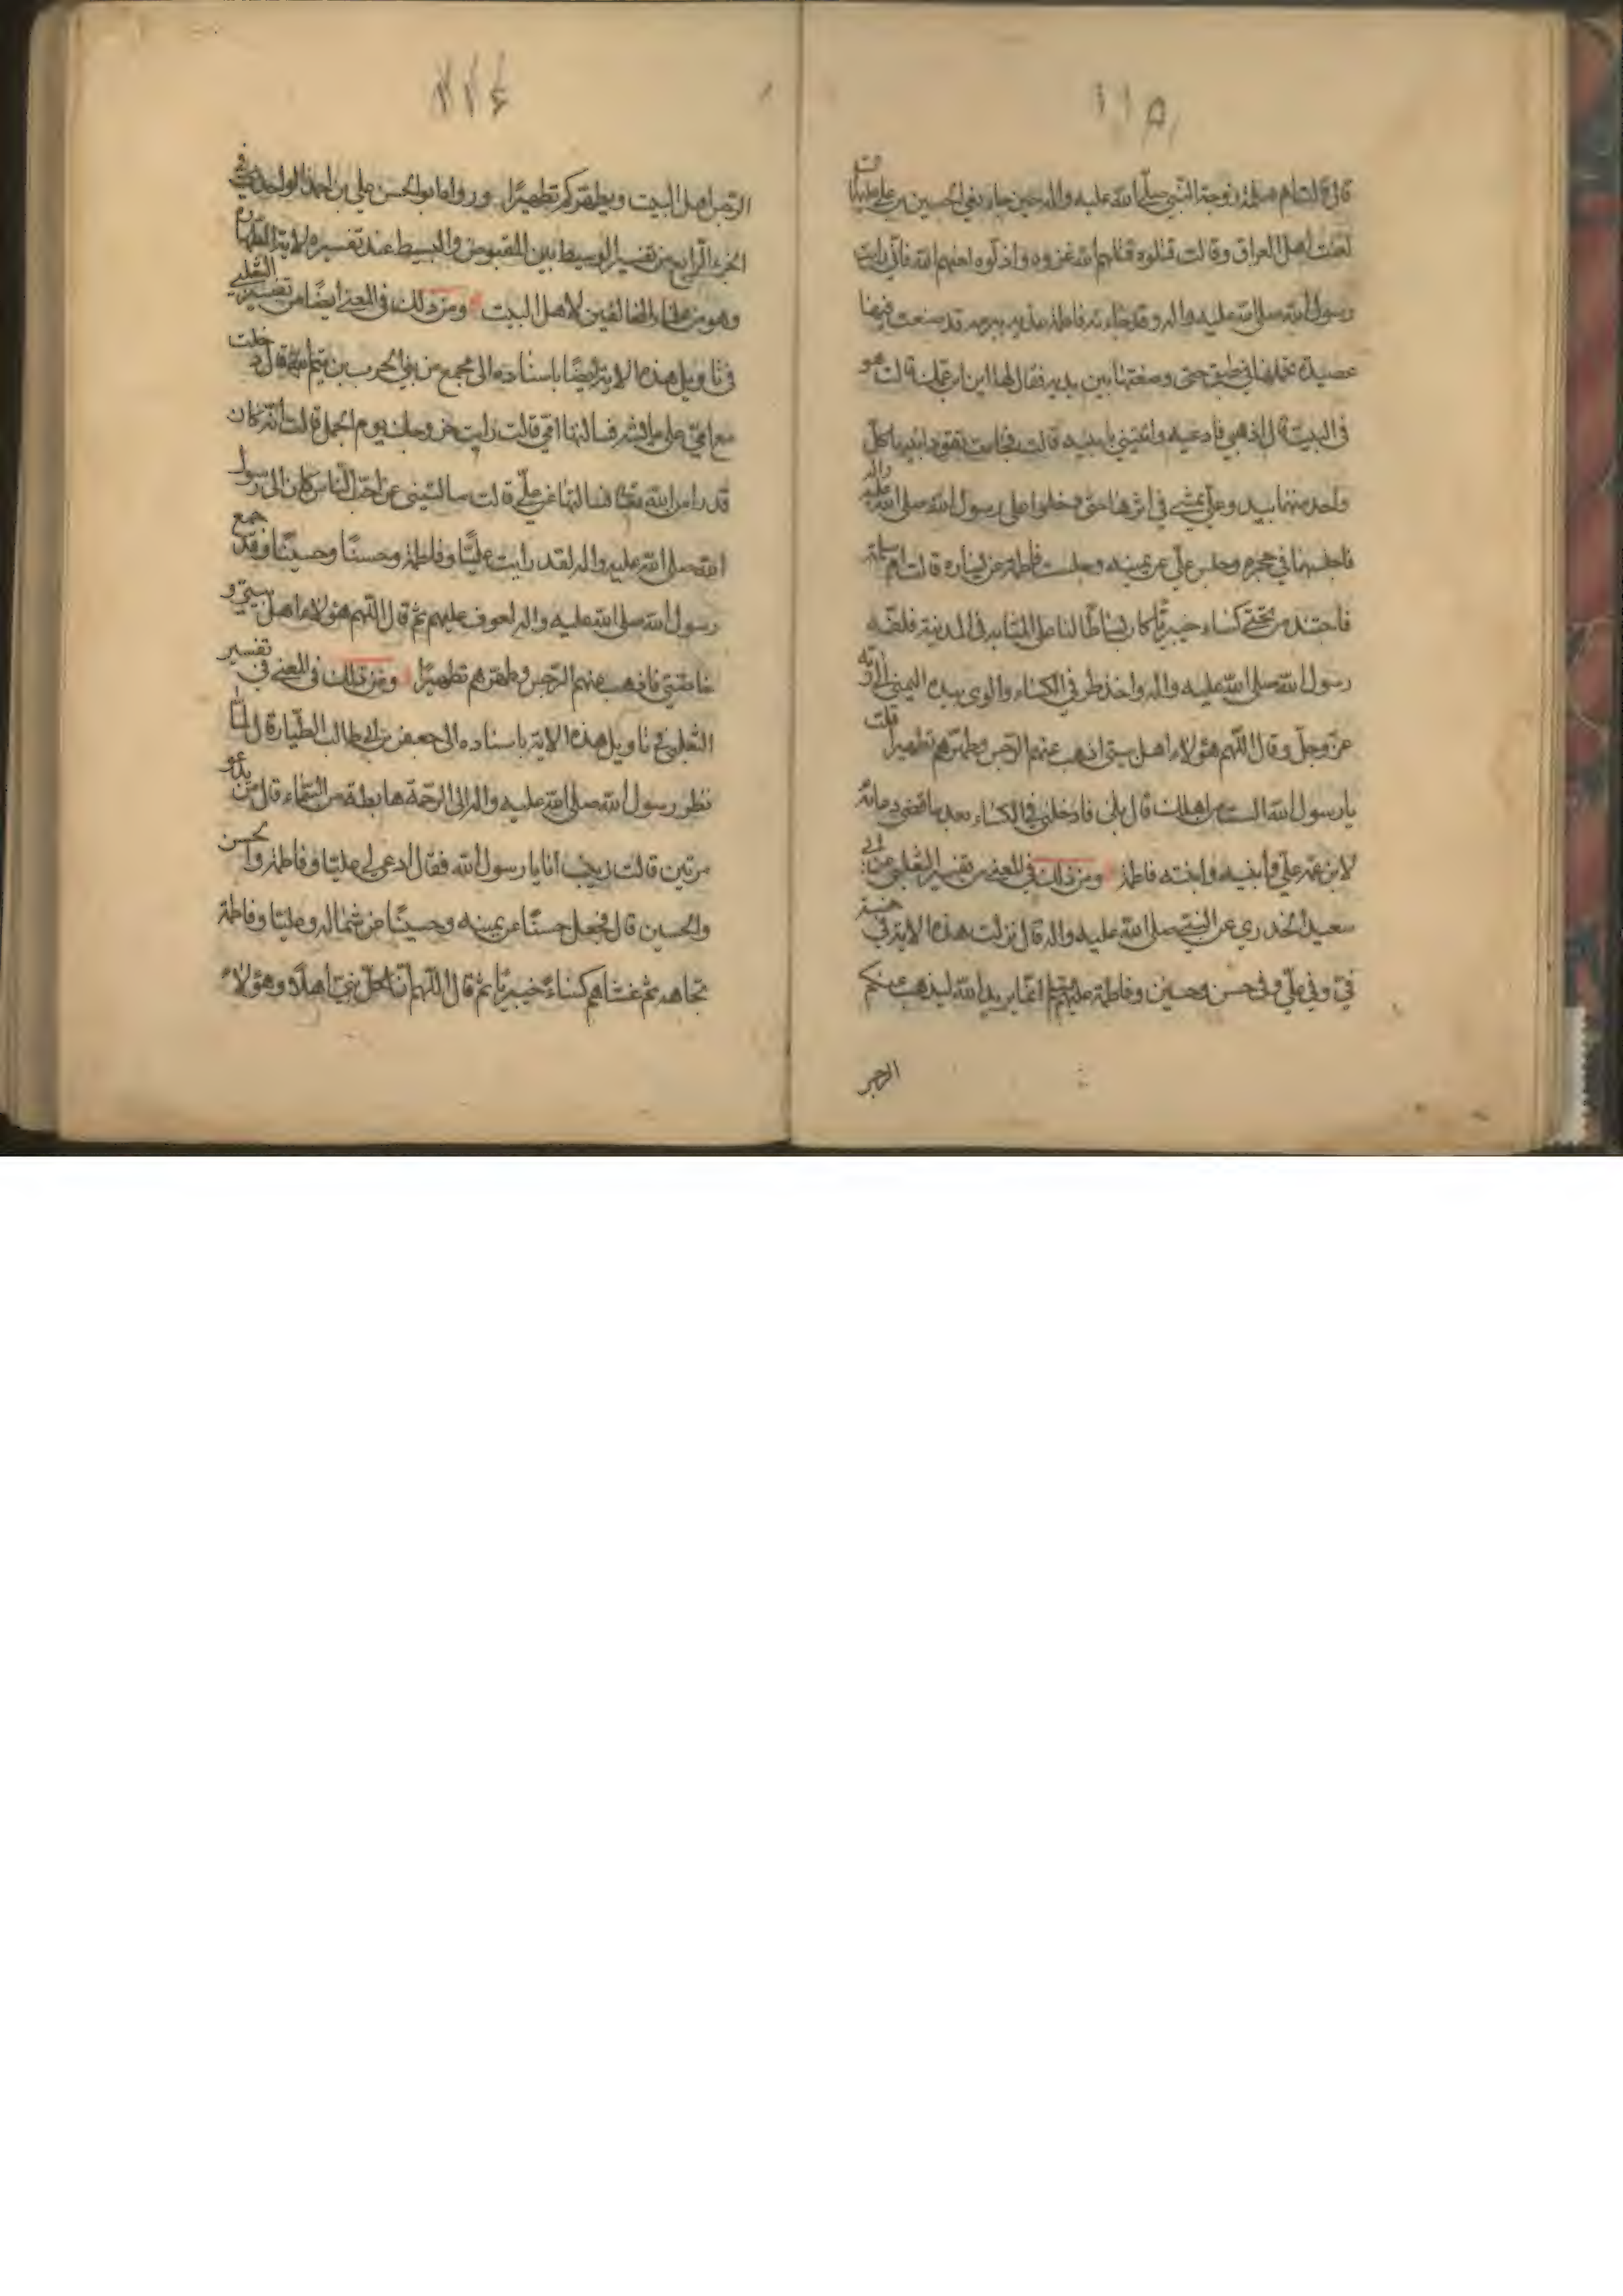 ١١٥
قال قالت ام سلمة زوجة النبي صلى الله عليه واله حين جاء نعي الحسين بن علي عليهما
لعنت اهل العراق وقالت قتلوه قتلهم الله غزوه واذلوه لعنهم الله فاني رايت
رسول الله صلى الله عليه واله وقد جاءته فاطمة غدية ببرمة قد صنعت فيها
عصيدة تحملها في طبق حتى وضعتها بين يديه فقال لها اين ابن عمك قالت هو
في البيت قال اذهبي فادعيه وائتيني بابنيه قالت فجاءت تقود ابنيها كل
واحد منهما بيد وعلي يمشي في اثرها حتى دخلوا على رسول الله صلى الله عليه واله
فاجلسهما في حجره وجلس علي عن يمينه وجلست فاطمة عن يساره قالت ام سلمة
فاجتبذ من تحتي كساء خيبريا كان بساطا لنا على المثابة في المدينة فلفه
رسول الله صلى الله عليه واله واخذ طرفي الكساء والوى بيده اليمنى الى ربه
عز وجل وقال اللهم هؤلاء اهل بيتي اذهب عنهم الرجس وطهرهم تطهيرا قلت
يا رسول الله الست من اهلك قال بلى فادخلني في الكساء بعد ما قضى دعائه
لابن عمه علي وابنيه وابنته فاطمة ومن ذلك في المعنى من تفسير الثعلبي عن ابي
سعيد الخدري عن النبي صلى الله عليه واله قال نزلت هذه الاية في خمسة
في وفي علي وفي حسن وحسين وفاطمة عليهم انما يريد الله ليذهب عنكم
الرجس
١١٤
الرجس اهل البيت ويطهركم تطهيرا ورواه ابو الحسن علي بن احمد الواحدي في
الجزء الرابع من تفسير الوسيط بين المقبوض والبسيط عند تفسيره لاية الطهارة
وهو من علماء المخالفين لاهل البيت ومن ذلك في المعنى ايضا من تفسير الثعلبي
في تاويل هذه الاية ايضا باسناده الى مجمع من بني الحرب بن تيم الله قال دخلت
مع امي على عايشة فسالتها امي قالت رايت خروجك يوم الجمل قالت انه كان
قدرا من الله فسالتها عن علي قالت سالتيني عن احب الناس كان الى رسول
الله صلى الله عليه واله لقد رايت عليا وفاطمة وحسنا وحسينا وقد جمع
رسول الله صلى الله عليه واله لفوف عليهم ثم قال اللهم هؤلاء اهل بيتي و
خاصتي فاذهب عنهم الرجس وطهرهم تطهيرا ومن ذلك في المعنى في تفسير
الثعلبي في تاويل هذه الاية باسناده الى جعفر بن ابي طالب الطيار قال لما
نظر رسول الله صلى الله عليه واله الى الرحمة هابطة من السماء قال من يدعو
مرتين قالت زينب انا يا رسول الله فقال ادعي لي عليا وفاطمة والحسن
والحسين قال فجعل حسنا عن يمينه وحسينا عن شماله وعليا وفاطمة
تجاهه ثم غشاهم كساء خيبريا ثم قال اللهم ان لكل نبي اهلا وهؤلاء